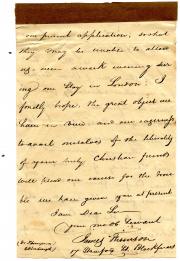 our present application, so that
they may be unable to allow
us, even a week evening dur
ing our stay in London; I
fondly hope, the great object we
have in view and our eagerness
to avail ourselves of the liberality
of your truly Christian friends
will plead our excuse for the trou
ble we have given you at present
I am Dear Sir
Your most devoted
James Thomson
17 Stamford St Blackfriars